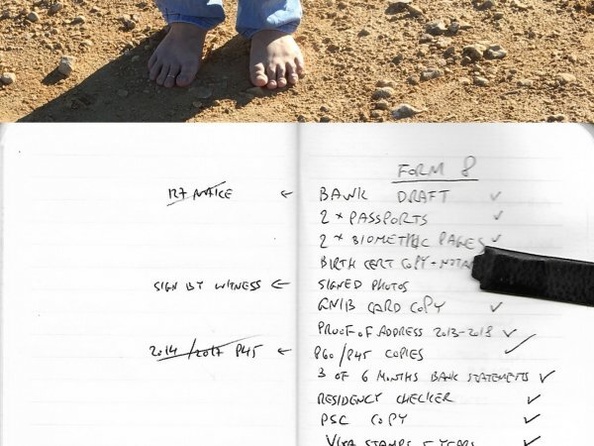 FORM 8
127 NAICE ← BANK DRAFT ✓
2 * PASSPORTS ✓
2 * BIOMETRIC PAGES ✓
BIRTH CERT COPY
SIGN BY WITNESS ← SIGNED PHOTOS
GNIB CARD COPY ✓
PROOF OF ADDRESS 2013-2018 ✓
2014 / 2017 P45 ← P60 / P45 COPIES ✓
3 OF 6 MONTHS BANK STATEMENTS ✓
RESIDENCY CHECKER ✓
PSC COPY ✓
VISA STAMPS 5 YEARS